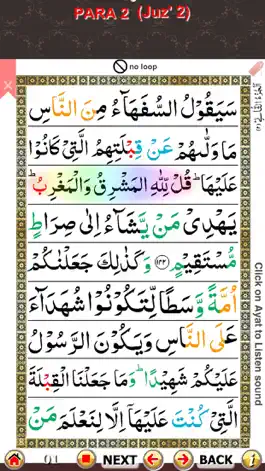 PARA 2 (Juz' 2)
no loop
سَيَقُوْلُ السُّفَهَآءُ مِنَ النَّاسِ
مَا وَلّٰىهُمْ عَنْ قِبْلَتِهِمُ الَّتِيْ كَانُوْا
عَلَيْهَا ؕ قُلْ لِّلّٰهِ الْمَشْرِقُ وَالْمَغْرِبُ ؕ
يَهْدِيْ مَنْ يَّشَآءُ اِلٰى صِرَاطٍ
مُّسْتَقِيْمٍ ﴿۱۴۲﴾ وَكَذٰلِكَ جَعَلْنٰكُمْ
اُمَّةً وَّسَطًا لِّتَكُوْنُوْا شُهَدَآءَ
عَلَى النَّاسِ وَيَكُوْنَ الرَّسُوْلُ
عَلَيْكُمْ شَهِيْدًا ؕ وَمَا جَعَلْنَا الْقِبْلَةَ
الَّتِيْ كُنْتَ عَلَيْهَا اِلَّا لِنَعْلَمَ مَنْ
Click on Ayat to Listen sound
01 NEXT BACK i